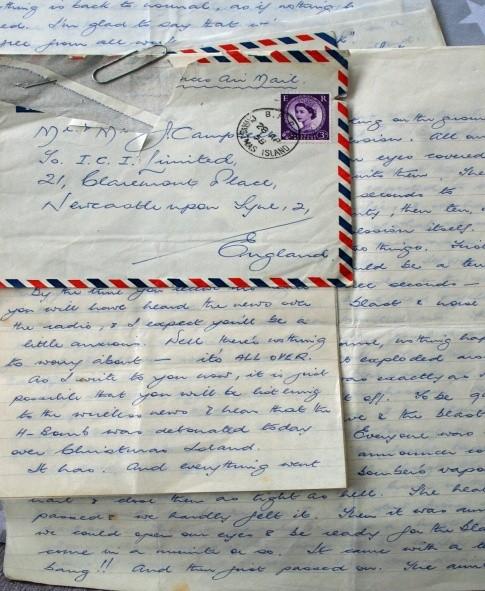 thing is back to normal, as if nothing
I'm glad to say that
free from all
Air Mail.
Mr & Mrs J. Camp
To. I.C.I. Limited,
21, Claremont Place,
Newcastle upon Tyne, 2,
England
E R
28 AP
58
MAS ISLAND
3D
By the time you
you will have heard the news over
the radio, & I expect you'll be a
little anxious. Well there's nothing
to worry about — its ALL OVER.
As I write to you now, it is just
possible that you will be listening
to the wireless news & hear that the
H-Bomb was detonated today
over Christmas Island.
It has. And everything went
on the ground
All
eyes covered
with them. The
seconds to
then ten,
itself.
things. This
be a ten
seconds —
blast & noise
nothing hap
exploded
was exactly as
off. To be
& the blast
Everyone was
announcer
bomber's vapo
& close them as tight as hell. The heat
passed & we hardly felt it. Then it was
we could open our eyes & be ready for the bla
come in a minute or so. It came with a
bang!! And then just passed on. The